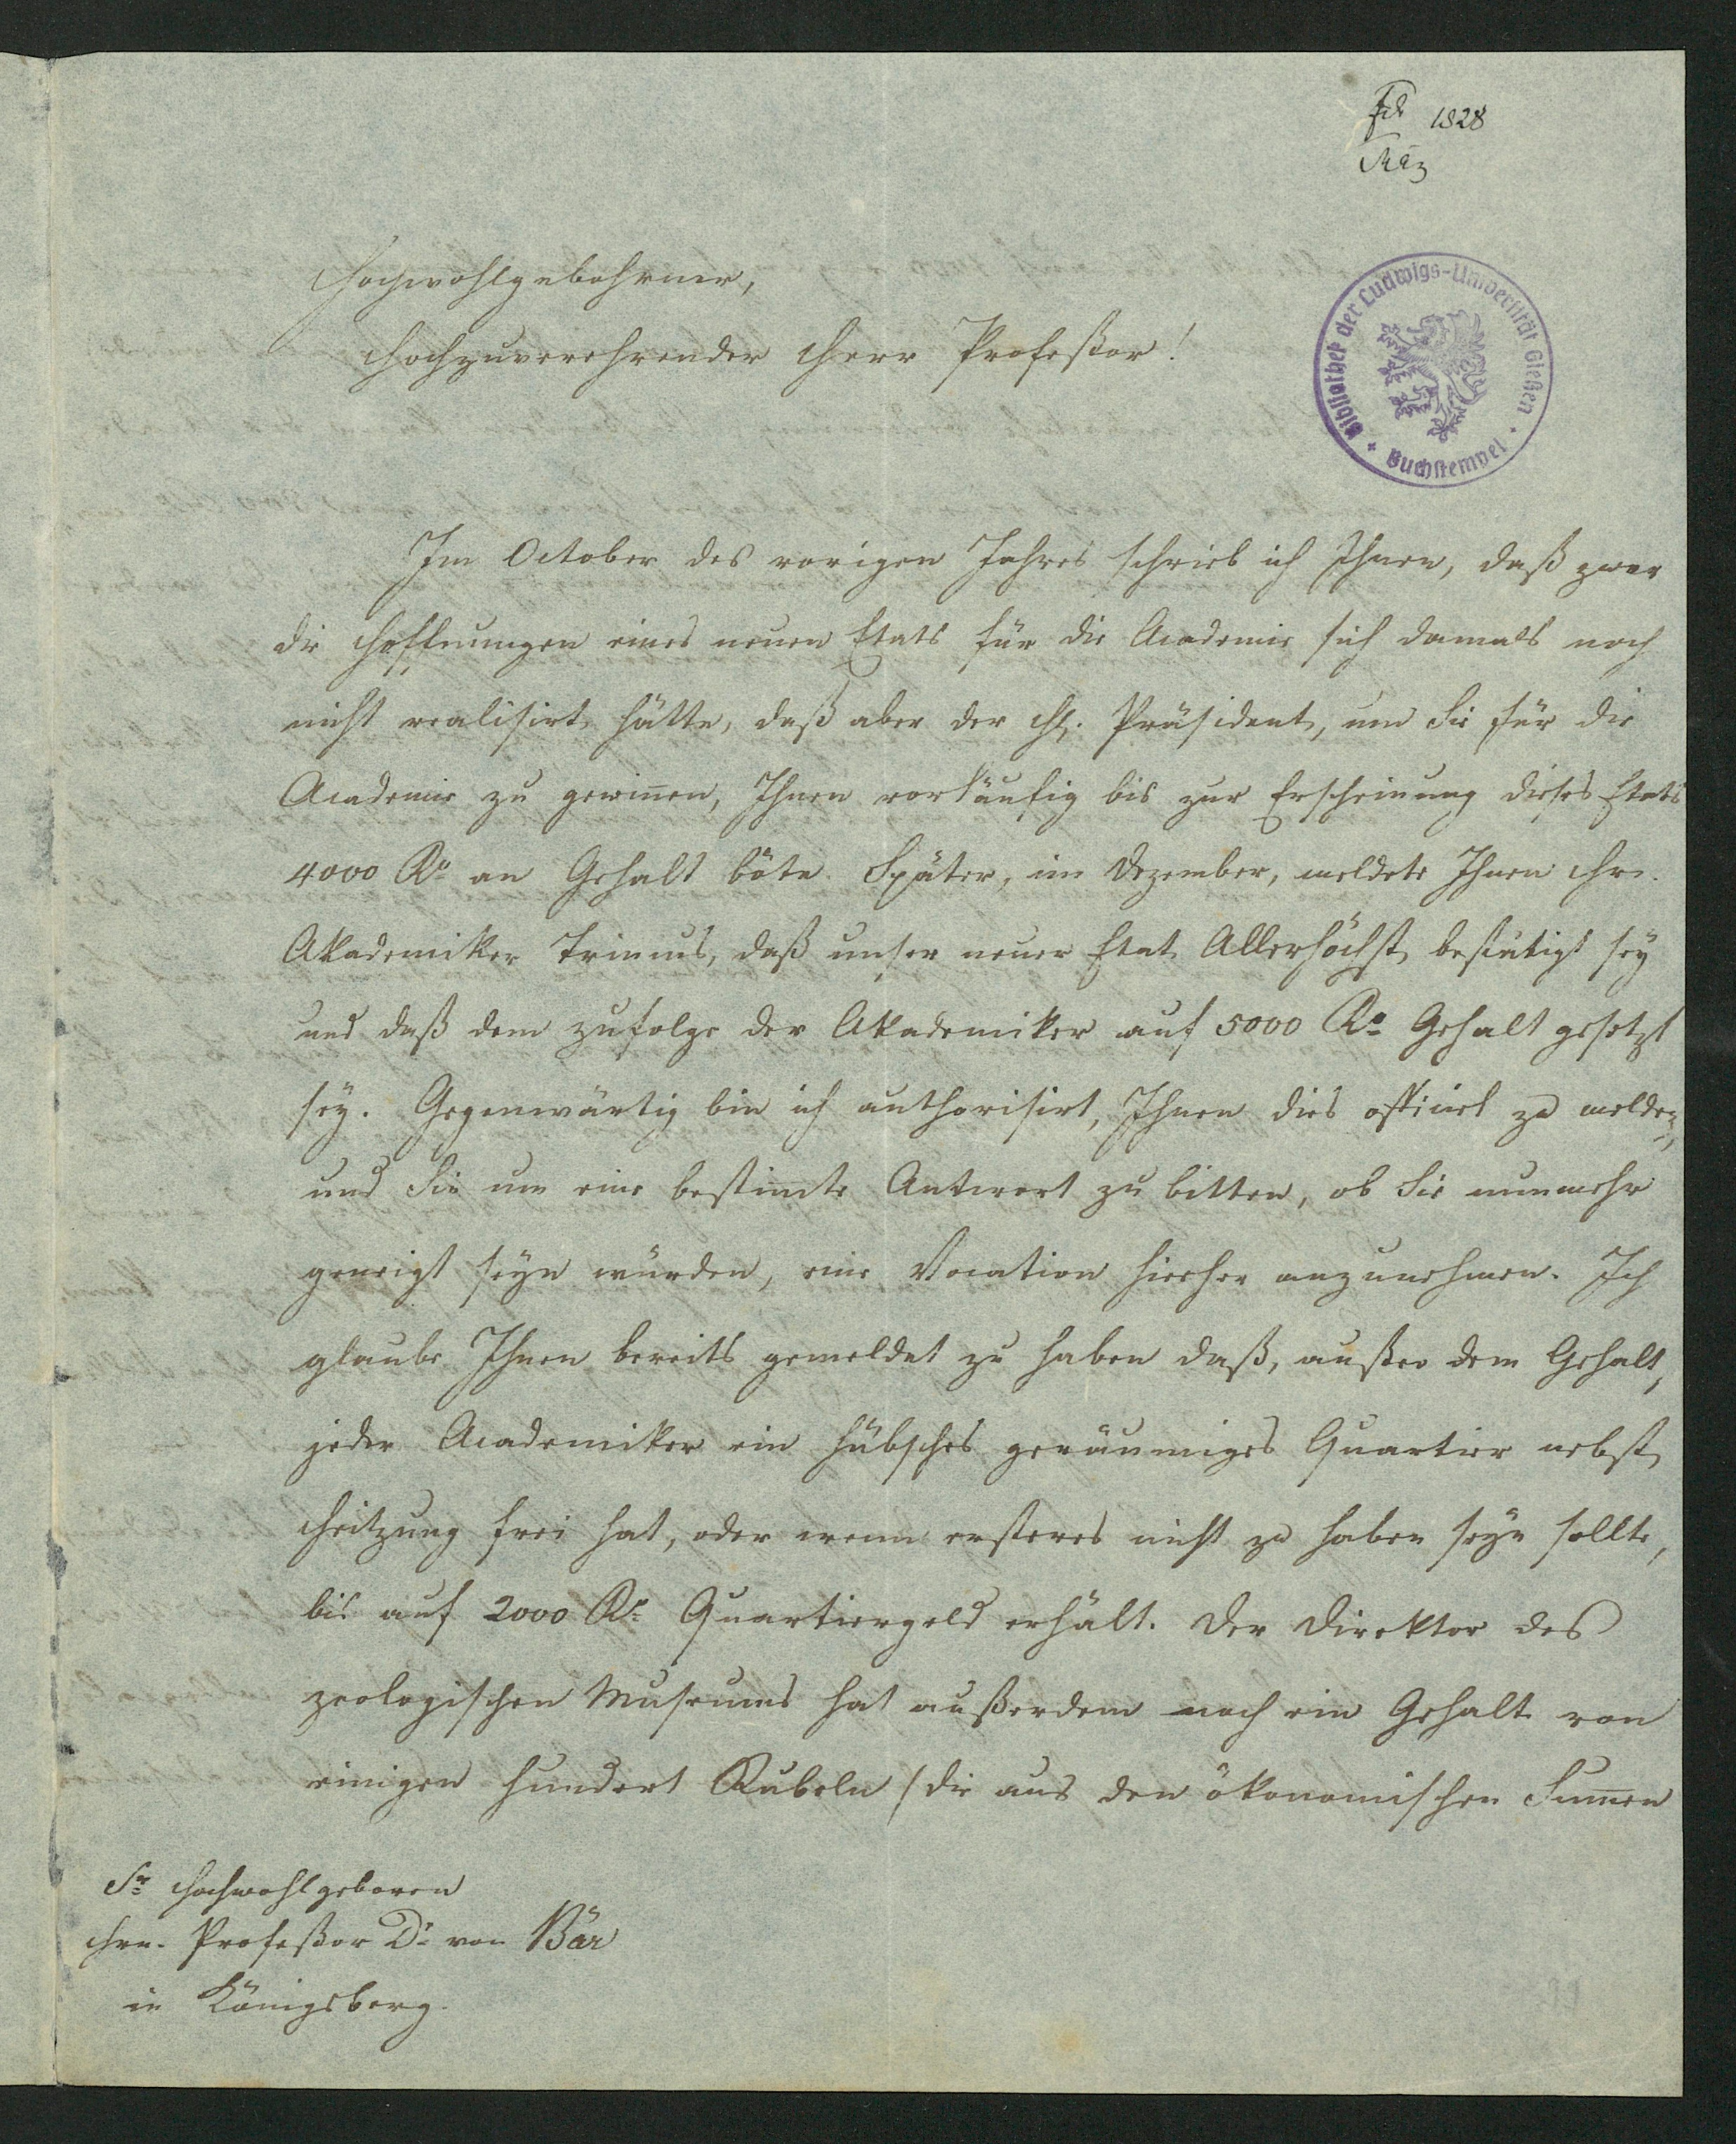 1828
März
Hochwohlgebohrner,
Hochzuverehrender Herr Profeßor!
Bibliothek der Ludwigs-Universität Gießen
Buchstempel
Im October des vorigen Jahres schrieb ich Ihnen, daß zwar
die Hoffnungen eines neuen Etats für die Academie sich damals noch
nicht realisirt hätte, daß aber der H. Präsident, um Sie für die
Academie zu gewin̅en, Ihnen vorläufig bis zur Erscheinung dieses Etats
4000 Ro an Gehalt böte. Später, im Dezember, meldete Ihnen Hr.
Akademiker Trinius, daß unser neuer Etat Allerhöchst bestätigt sey
und daß dem zufolge der Akademiker auf 5000 Ro Gehalt gesetzt
sey. Gegenwärtig bin ich authorisirt, Ihnen dies officiel zu melden,
und Sie um eine bestim̅te Antwort zu bitten, ob Sie nunmehr
geneigt seyn würden, eine Vocation hierher anzunehmen. Ich
glaube Ihnen bereits gemeldet zu haben daß, außer dem Gehalt,
jeder Academiker ein hübsches geräumiges Quartier nebst
Heitzung frei hat, oder wenn ersteres nicht zu haben seyn sollte,
bis auf 2000 Ro Quartiergeld erhält. Der Direktor des
zoologischen Museums hat außerdem noch ein Gehalt von
einigen hundert Rubeln (die aus den ökonomischen Sum̅en
Sr Hochwohlgeboren
Hrn. Profeßor Dr von Bär
in Königsberg.